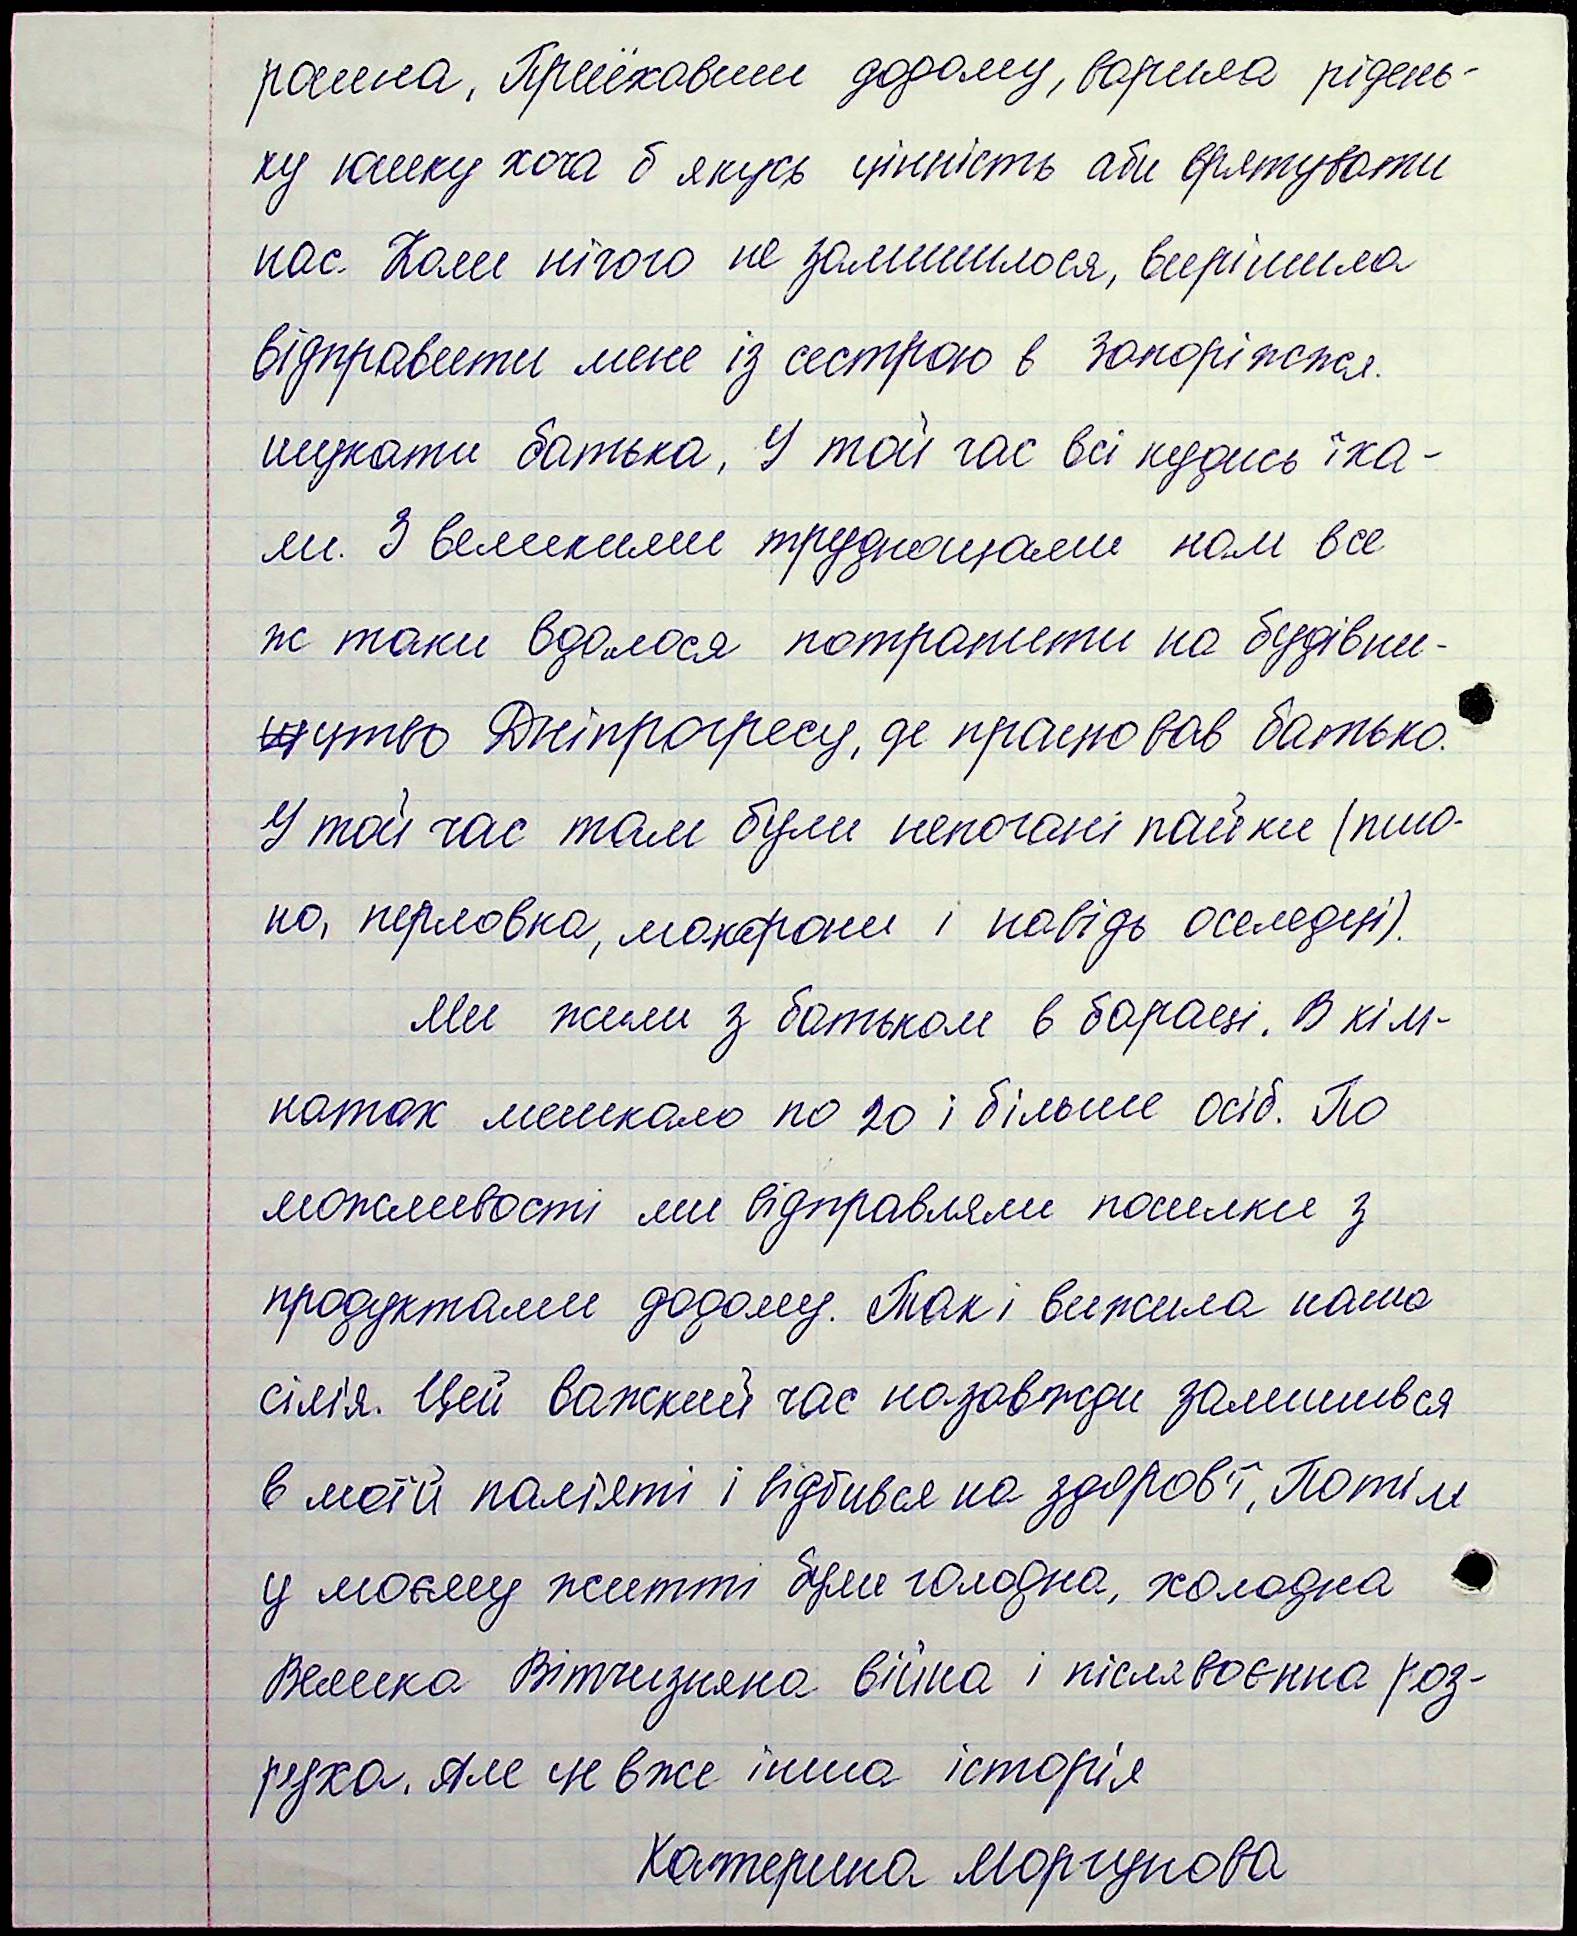 рошна. Приїхавши додому, варила рідень-
ку юшку хоча б якусь цінність аби врятувати
нас. Коли нічого не залишилося, вирішила
відправити мене із сестрою в Запоріжжя.
шукати батька. У той час всі кудись їха-
ли. З великими труднощами нам все
ж таки вдалося потрапити на будівни-
цтво Дніпрогресу, де працював батько.
У той час там були непогані пайки (пшо-
но, перловка, макарони і навідь оселедці).
Ми жили з батьком в бараці. В кім-
натах мешкало по 20 і більше осіб. По
можливості ми відправляли посилки з
продуктами додому. Так і вижила наша
сім'я. Цей важкий час назавжди залишився
в моїй пам'яті і відбився на здоров'ї. Потім
у моєму житті були голодна, холодна
Велика Вітчизняна війна і післявоєнна роз-
руха. Але це вже інша історія
Катерина Моргунова